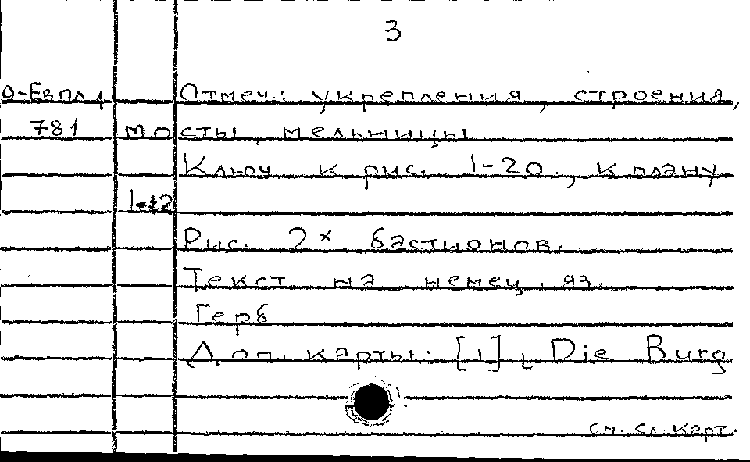 3
О-ЕвПл, 1 Отмеч.: укрепления, строения,
781 мосты, мельницы
Ключ к рис. 1-20, к плану
1-12
Рис. 2х бастионов.
Текст на немец. яз.
Герб
Доп. карты: [1], Die Burg
см. сл. карт.